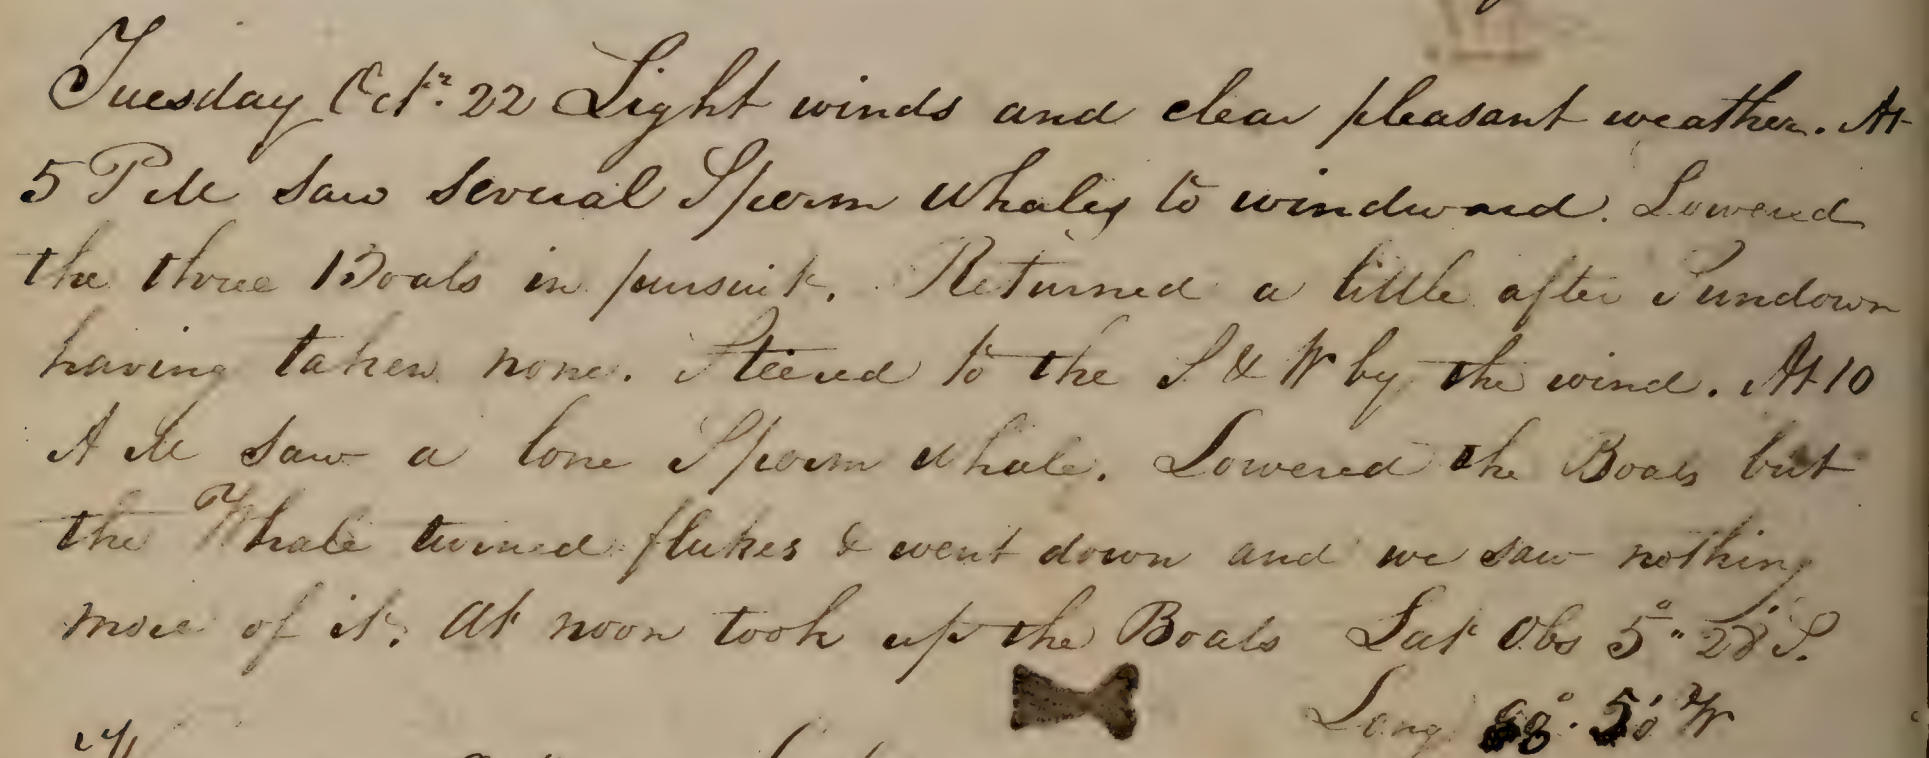 Tuesday Octr. 22 Light winds and clear pleasant weather. At
5 PM saw several Sperm Whales to windward. Lowered
the three Boats in pursuit. Returned a little after Sundown
having taken none. Steered to the S & W by the wind. At 10
A M saw a lone Sperm whale. Lowered the Boats but
the Whale turned flukes & went down and we saw nothing
more of it. At noon took up the Boats Lat Obs 5°" 28' S.
Long W